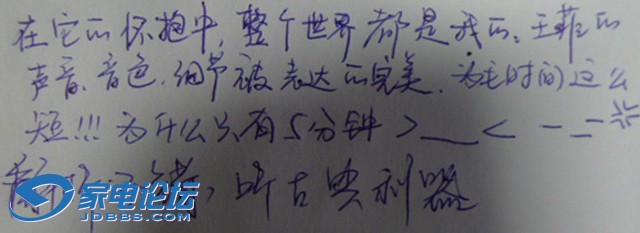 在它的怀抱中,整个世界都是我的。王菲的
声音、音色、细节被表达的完美.为毛时间这么
短!!!为什么只有5分钟>__<
错,听古典利器
家电论坛
JDBBS.COM